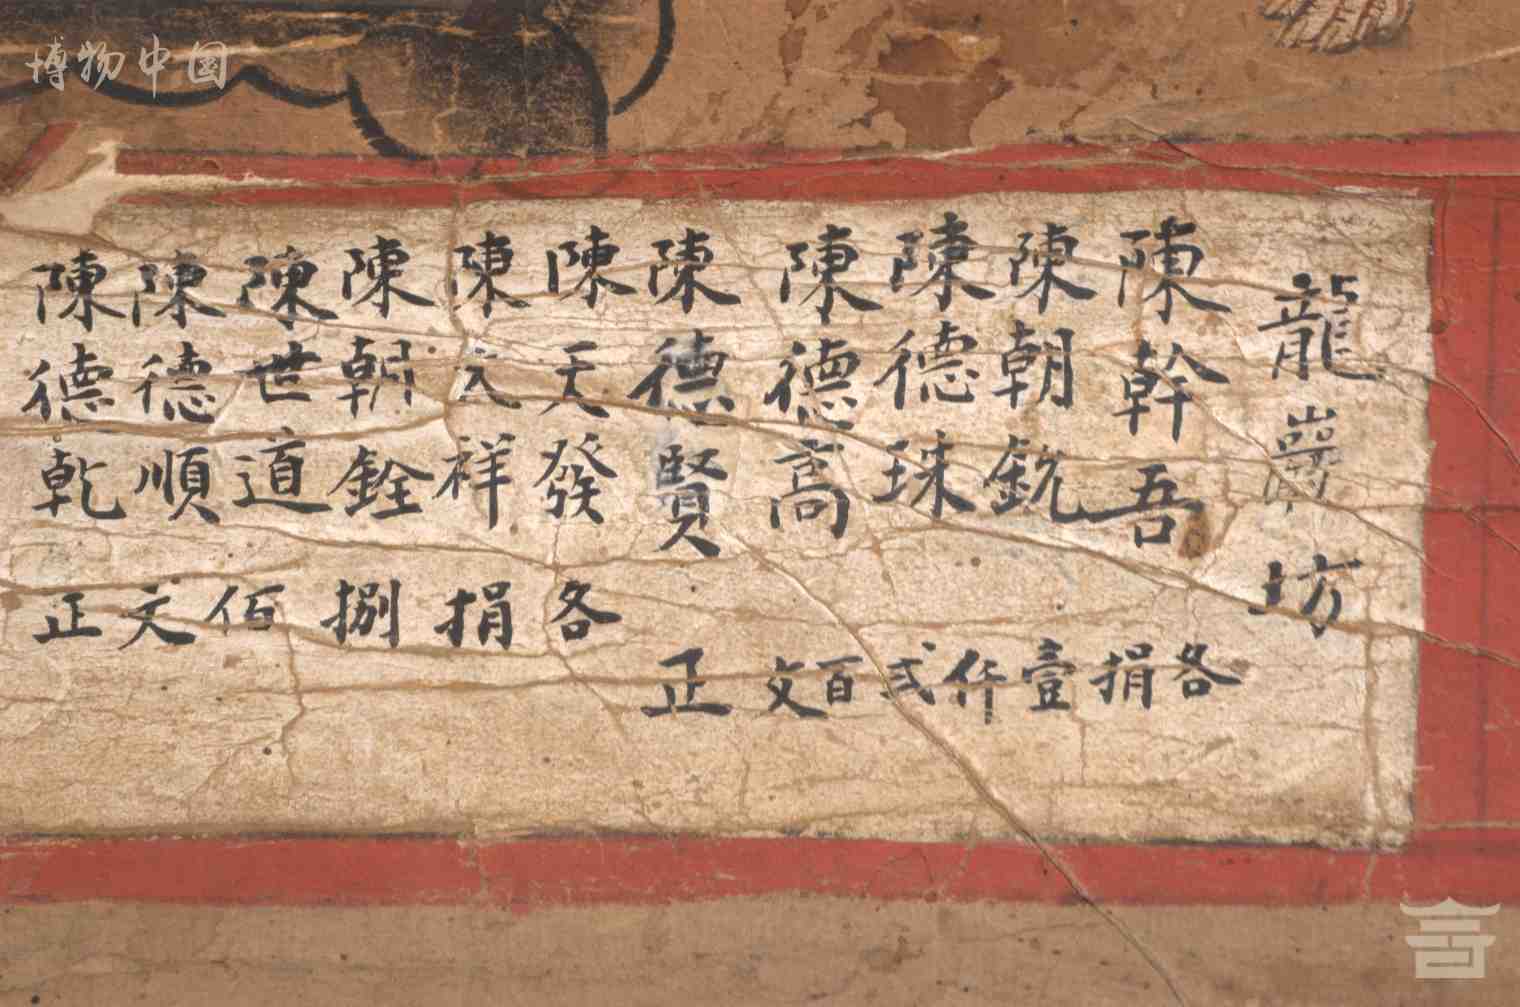 博物中国
龍巖坊
陳幹吾
陳朝銳
陳德珠
陳德高
陳德賢
各捐壹仟弍百文正
陳天發
陳文祥
陳朝銓
陳世道
陳德順
陳德乾
各捐捌佰文正